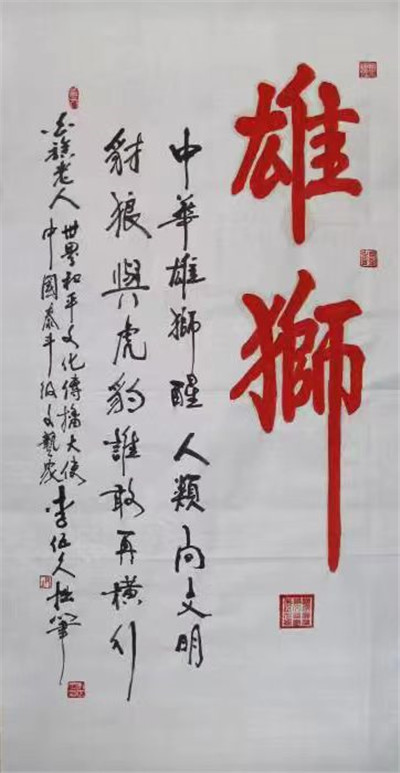 雄獅
中華雄獅醒人類向文明
豺狼與虎豹誰敢再橫行
老人
世界和平文化傳播大使
中國泰斗级文藝家
李伍久拙筆